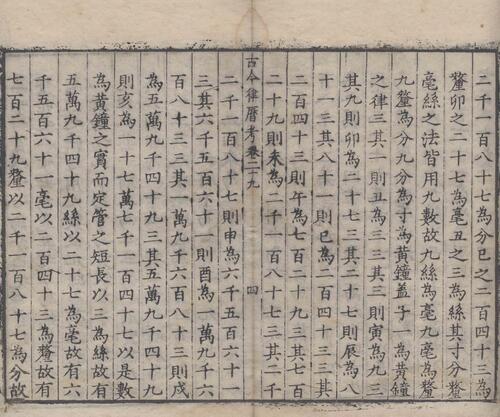 二千一百八十七為分巳之二百四十三為
釐卯之二十七為毫丑之三為絲其寸分釐
毫絲之法皆用九數故九絲為毫九毫為釐
九釐為分九分為寸為黃鐘盖子一為黃鐘
之律三其一則丑為三三其三則寅為九三
其九則卯為二十七三其二十七則辰為八
十一三其八十一則巳為二百四十三三其
二百四十三則午為七百二十九三其七百
二十九則未為二千一百八十七三其
古今律曆考卷二十九 四
二千一百八十七則申為六千五百六十一
三其六千五百六十一則酉為一萬九千六
百八十三三其一萬九千六百八十三則戌
為五萬九千四十九三其五萬九千四十九
則亥為一十七萬七千一百四十七以是數
為黃鐘之實而定管之短長以三為絲故有
五萬九千四十九絲以二十七為毫故有六
千五百六十一毫以二百四十三為釐故有
七百二十九釐以二千一百八十七為分故